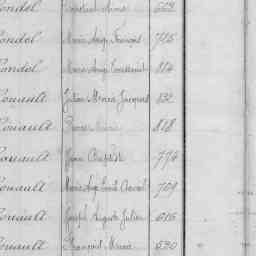 Condel Constant Marie 603
Condel Marie Ange François 745
Condel Marie Ange Toussaint 814
Conault Julien Marie Jacques 832
Conault Pierre Marie 818
Conault Jean Baptiste 774
Conault Marie Ange 709
Conault Joseph Auguste Julien 616
Conault François Marie 630